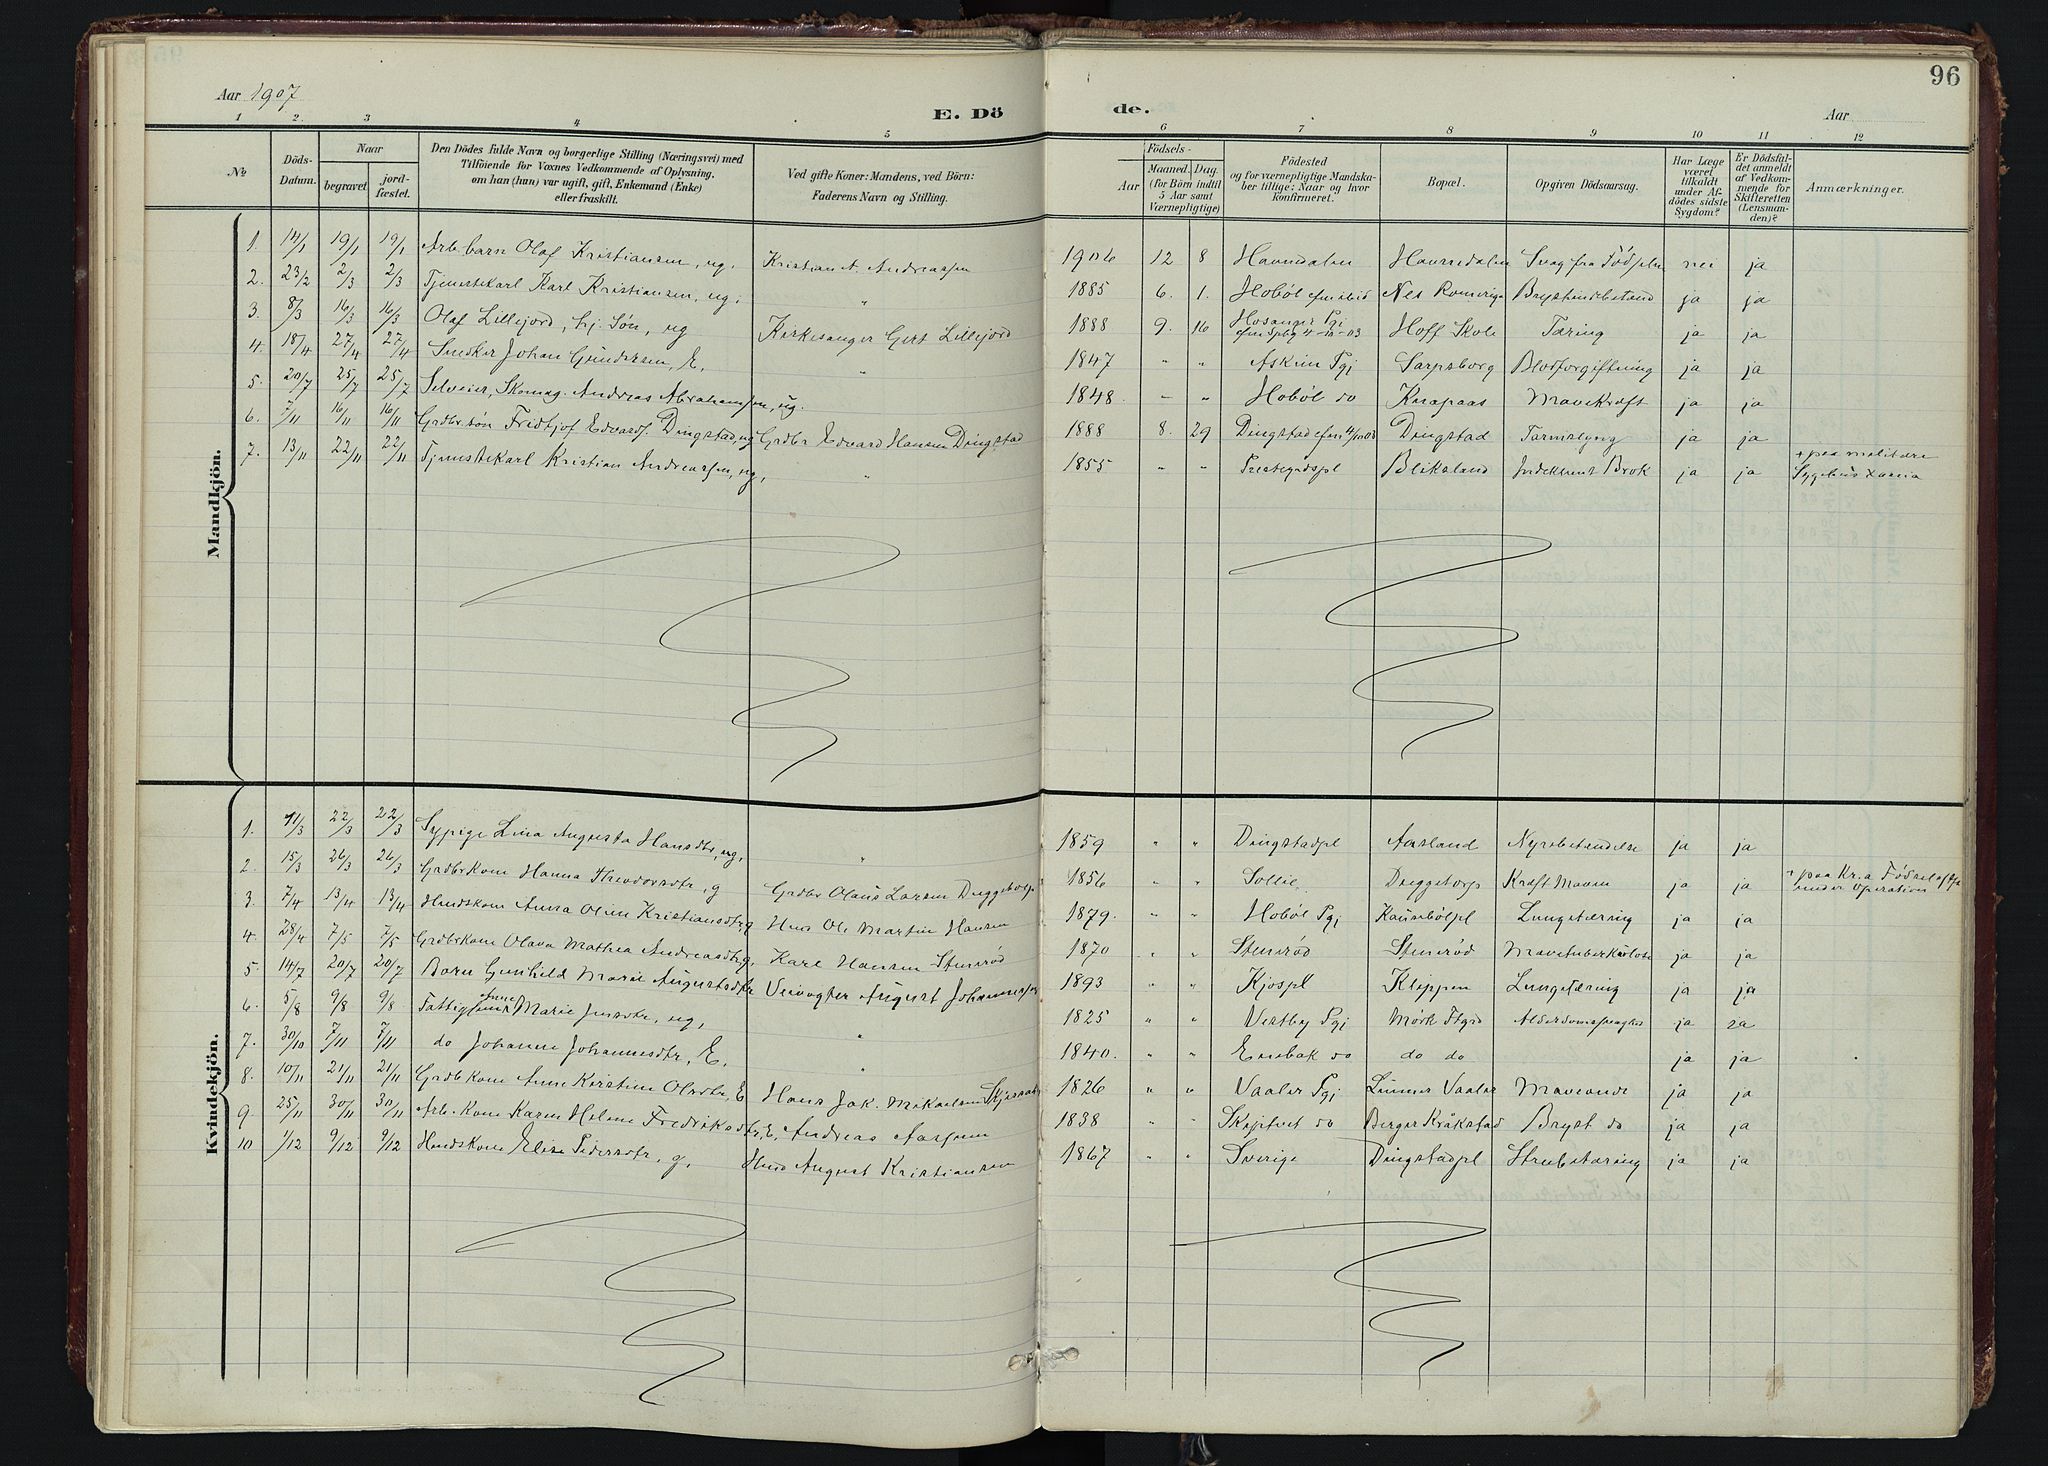 Aar 1907
E. Dö
de.
Aar
96
1 2. 3 4 5 6 7 8 9 10 11 12
№ Döds-Datum. Naar begravet jord-fæstet. Den Dödes fulde Navn og borgerlige Stilling (Næringsvei) med Tilföiende for Voxnes Vedkommende af Oplysning. om han (hun) var ugift, gift, Enkemand (Enke) eller fraskilt. Ved gifte Koner: Mandens, ved Börn: Faderens Navn og Stilling. Födsels- Aar Maaned. Dag. (for Börn indtil 5 Aar samt Værnepligtige) Födested og for værnepligtige Mandska-ber tillige: Naar og hvor konfirmeret. Bopæl. Opgiven Dödsaarsag. Har Læge været tilkaldt under Af-dödes sidste Sygdom? Er Dödsfal-det anmeldt af Vedkom-mende for Skifteretten (Lensman-den)? Anmærkninger.
Mandkjön.
1. 14/1 19/1 19/1 Arb. barn Olaf Kristiansen, ug. Kristian A. Andreassen 1906 12 8 Havnedalen Havnedalen Svag fra Födseln nei ja
2. 23/2 2/3 2/3 Tjenestekarl Karl Kristiansen, ug. " 1885 6. 1. Hoböl Nes Romerige Brystindebetend ja ja
3. 8/3 16/3 16/3 Olaf Lillejord, hj. Sön, ug Kirkesanger Gert Lillejord 1888 9. 16 Hosanger Pgj Hoff Skole Tæring ja ja
4. 18/4 27/4 27/4 Snedker Johan Gundersen, E. " 1847 " " Askim Pgj Sarpsborg Blodforgiftning ja ja
5. 20/7 25/7 25/7 Selveier, Skomag. Andreas Abrahamsen, ug. 1848 - " Hoböl do Knapaas Mavekræft ja ja
6. 7/11 16/11 16/11 Grdbr. sön Fridtjof Edvards. Dingstad, ug Grdbr Edvard Hansen Dingstad 1888 8. 29 Dingstad Dingstad Tarmslyng ja ja + paa militære
7. 13/11 22/11 22/11 Tjenestekarl Kristian Andreassen, ug, " 1855 " " Prestegrdspl Bliksland Indeklemt Brok ja ja Sygehus Xania
Kvindekjön.
1. 11/3 22/3 22/3 Sypige Lina Augusta Hansdtr, ug, " 1859 " " Dingstadpl Aasland Nyrebetendelse ja ja
2. 15/3 26/3 26/3 Grdbrkone Hanna Theodorsdtr, g Grdbr Olaus Larsen Duggetorp 1856 " " Sollie Duggetorp Kræft Maven ja ja + paa Kr.a Födselsstift under Operation
3. 7/4 13/4 13/4 Husmdskone Anna Oline Kristiansdtr, g Husm Ole Martin Hansen 1879 " " Hoböl Pgj Lungetæring ja ja
4. 28/4 7/5 7/5 Grdbrkone Olava Mathea Andreasdtr, g. Karl Hansen Stenröd 1870 " " Stenröd Stenröd Mavetuberkulose ja ja
5. 14/7 20/7 20/7 Barn Gunhild Marie Augustasdtr Veivogter August Johannesen 1893 " " Kjospl Kleppen Lungetæring ja ja
6. 5/8 9/8 9/8 Fattiglem Anne Marie Jensdtr, ug, " 1825 " " Vestby Pgj Mörk Ftgrd Alderdomssvaghed ja ja
7. 30/10 7/11 7/11 do Johanne Johannesdtr, E. " 1840. " " Enebak do do do ja ja
8. 10/11 21/11 21/11 Grdbkone Anne Kirstine Olsdtr, E Hans Jak. Mikaelsen 1826 " " Vaaler Pgj Vaaler Maveonde ja ja
9. 25/11 30/11 30/11 Arb. kone Karen Helene Fredriksdtr, E, Andreas Aassen 1838 " " Skiptvet do Berger Kråkstad Bryst do ja ja
10 1/12 9/12 9/12 Husmdskone Elise Pedersdtr, g. Husm August Kristiansen 1867 " " Sverige Dingstadpl Strubetæring ja ja